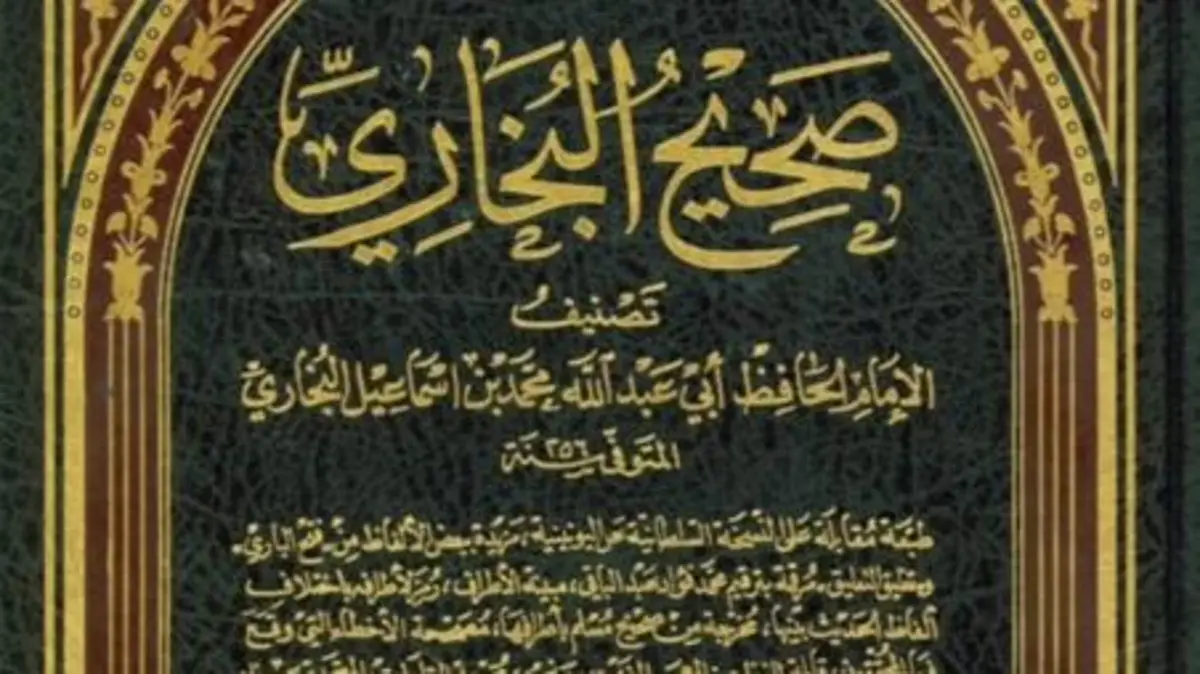 صَحِيْحُ البُخَارِيِّ
تَصْنِيفُ
الإِمَامِ الحَافِظْ أَبِي عَبْدِ اللَّهِ مُحَمَّدِ بْنِ اسْمَاعِيل البُخَارِيّ
المتَوَفّى سَنَة ٢٥٦
طَبْعَة مُقَابلَة عَلى النسْخَة السّلطانيّة عَن اليُونينية، مَزيّدة ببعض الألفَاظ مِن فتح البَاري
وتغليق التعليق ـ مُرقمة بترقيم محمّد فؤاد عَبد البَاقي، مبينة الأطراف، باختلاف
ألفاظ الحَديث بينها، مخرّجة مِن صَحيح مُسْلم بأطرافها، الأخطاء التي وَقعَ